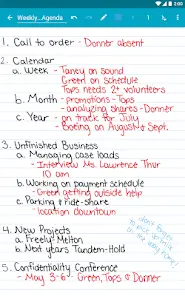 2:00
Weekly...Agenda
1. Call to order - Donner absent
2. Calendar
a. Week - Taney on sound
Green on schedule
Tops needs 2+ volunteers
b. Month - promotions - Tops
- analyzing shares - Donner
c. Year - on track for July
- Booting on August & Sept.
3. Unfinished Business
a. Managing case loads
- Interview Ms. Lawrence Thur
10 am
b. Working on payment schedule
- Green getting outside help
c. Parking & ride-share
- location downtown
4. New Projects
a. Freely Melton
b. Next years Tandem-Hold
5. Confidentiality Conference
- May 3-6. Green, Tops & Donner